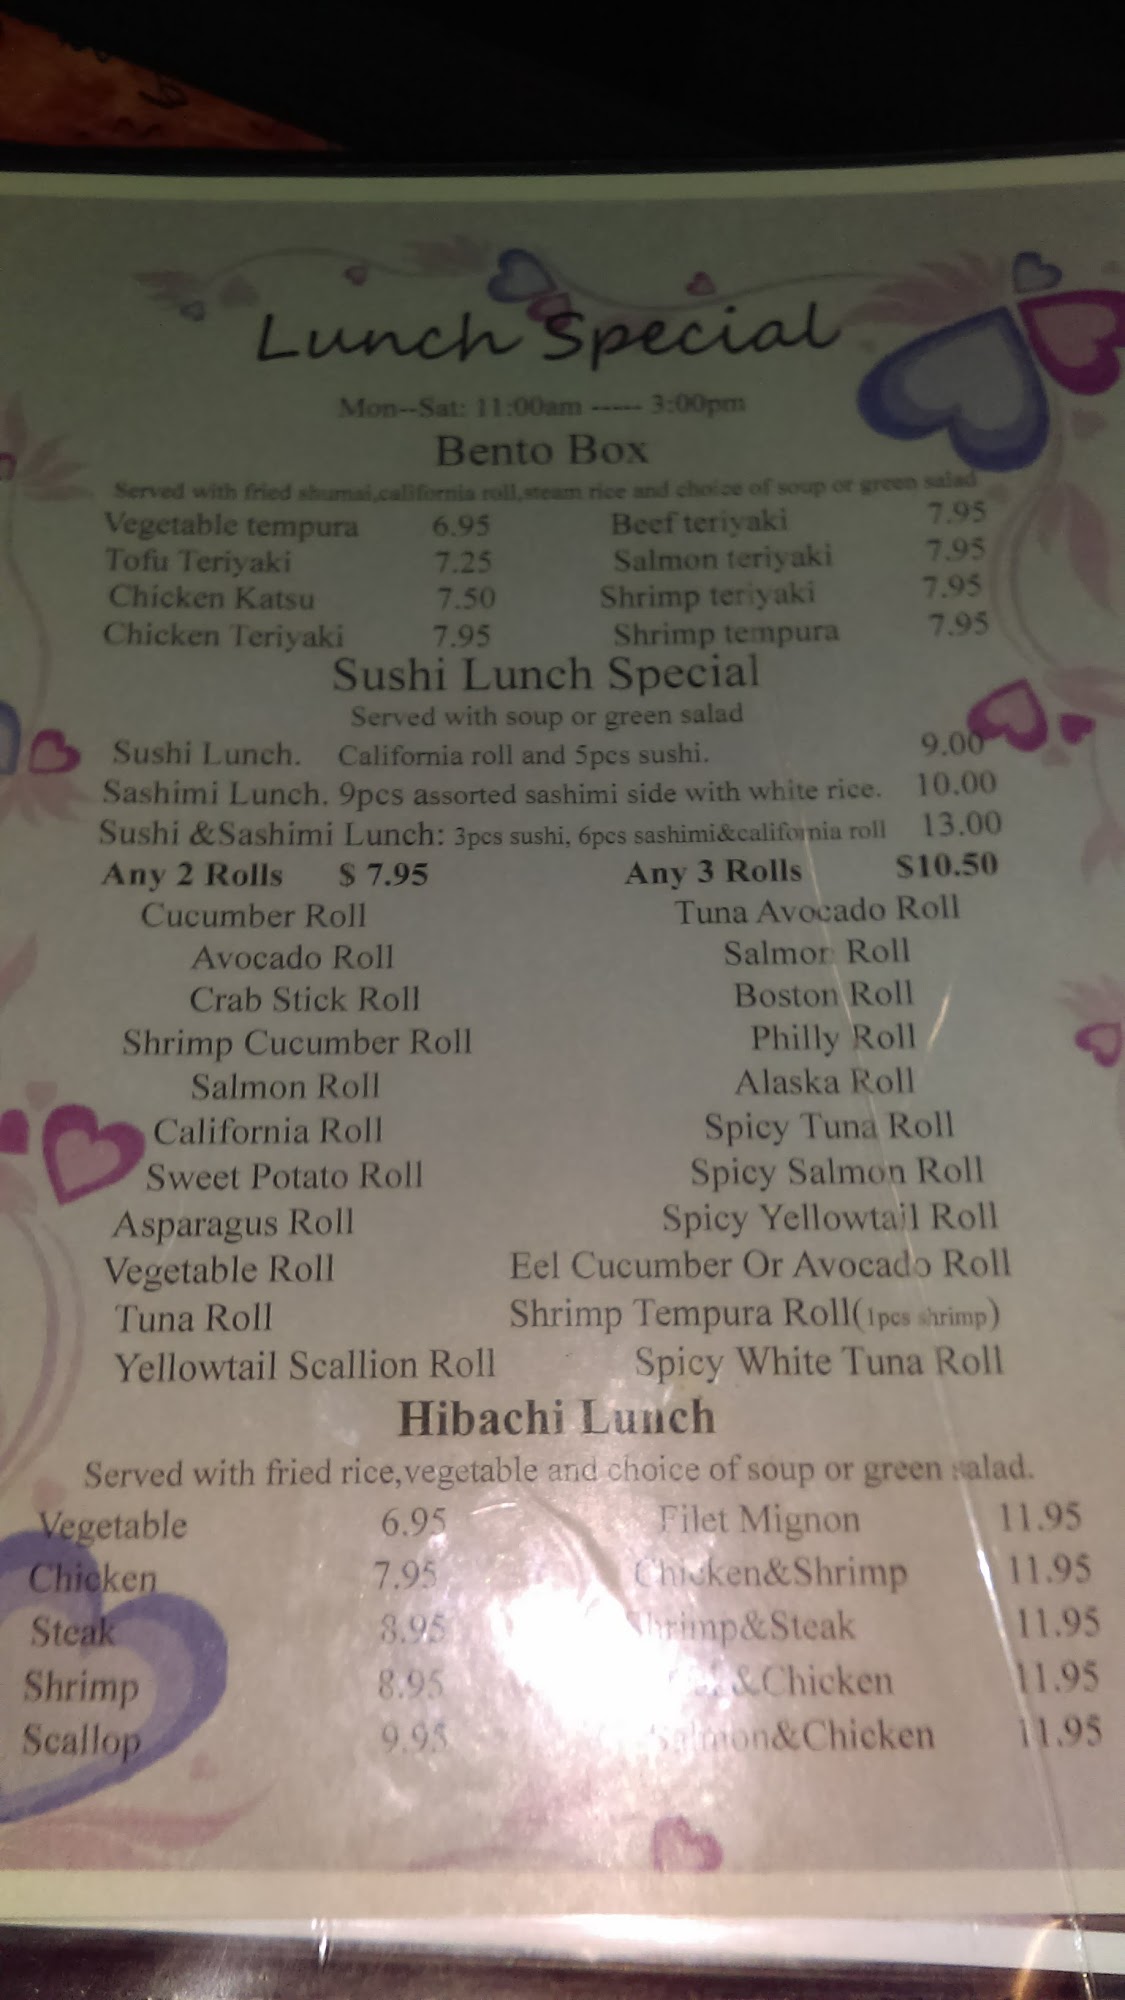 Lunch Special
Mon--Sat: 11:00am ----- 3:00pm
Bento Box
Served with fried shumai,california roll,steam rice and choice of soup or green salad
Vegetable tempura 6.95 Beef teriyaki 7.95
Tofu Teriyaki 7.25 Salmon teriyaki 7.95
Chicken Katsu 7.50 Shrimp teriyaki 7.95
Chicken Teriyaki 7.95 Shrimp tempura 7.95
Sushi Lunch Special
Served with soup or green salad
Sushi Lunch. California roll and 5pcs sushi. 9.00
Sashimi Lunch. 9pcs assorted sashimi side with white rice. 10.00
Sushi &Sashimi Lunch: 3pcs sushi, 6pcs sashimi&california roll 13.00
Any 2 Rolls $ 7.95 Any 3 Rolls $10.50
Cucumber Roll Tuna Avocado Roll
Avocado Roll Salmon Roll
Crab Stick Roll Boston Roll
Shrimp Cucumber Roll Philly Roll
Salmon Roll Alaska Roll
California Roll Spicy Tuna Roll
Sweet Potato Roll Spicy Salmon Roll
Asparagus Roll Spicy Yellowtail Roll
Vegetable Roll Eel Cucumber Or Avocado Roll
Tuna Roll Shrimp Tempura Roll(1pcs shrimp)
Yellowtail Scallion Roll Spicy White Tuna Roll
Hibachi Lunch
Served with fried rice,vegetable and choice of soup or green salad.
Vegetable 6.95 Filet Mignon 11.95
Chicken 7.95 Chicken&Shrimp 11.95
Steak 8.95 Shrimp&Steak 11.95
Shrimp 8.95 &Chicken 11.95
Scallop 9.95 Salmon&Chicken 11.95